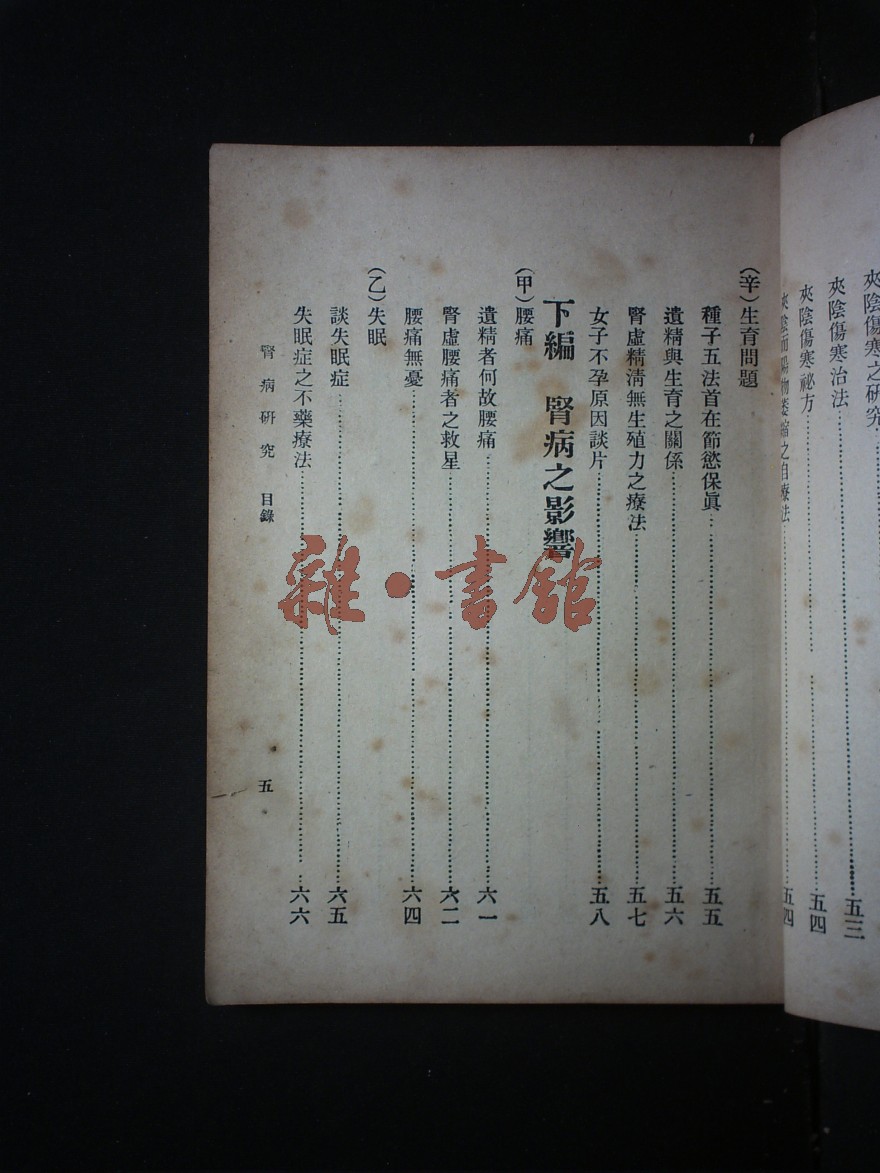 夾陰傷寒之研究
夾陰傷寒治法……五三
夾陰傷寒祕方……五四
夾陰而陽物萎縮之自療法……五四
(辛)生育問題
種子五法首在節慾保眞……五五
遺精與生育之關係……五六
腎虛精淸無生殖力之療法……五七
女子不孕原因談片……五八
下編 腎病之影響
(甲)腰痛
遺精者何故腰痛……六一
腎虛腰痛者之救星……六二
腰痛無憂……六四
(乙)失眠
談失眠症……六五
失眠症之不藥療法……六六
腎病研究 目錄 五
雜·書館